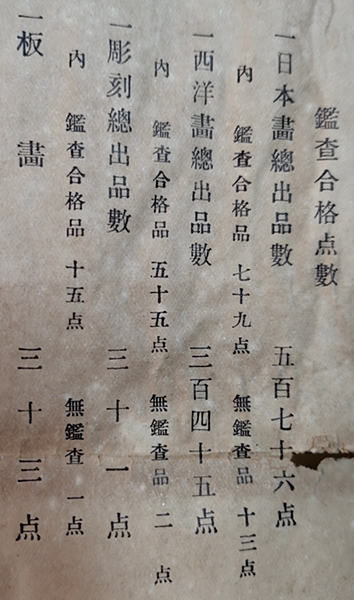 鑑査合格点數
一日本畫總出品數 五百七十六点
内 鑑査合格品 七十九点 無鑑査品 十三点
一西洋畫總出品數 三百四十五点
内 鑑査合格品 五十五点 無鑑査品 二 点
一彫刻總出品數 三十一点
内 鑑査合格品 十五点 無鑑査 一点
一板 畵 三十三点